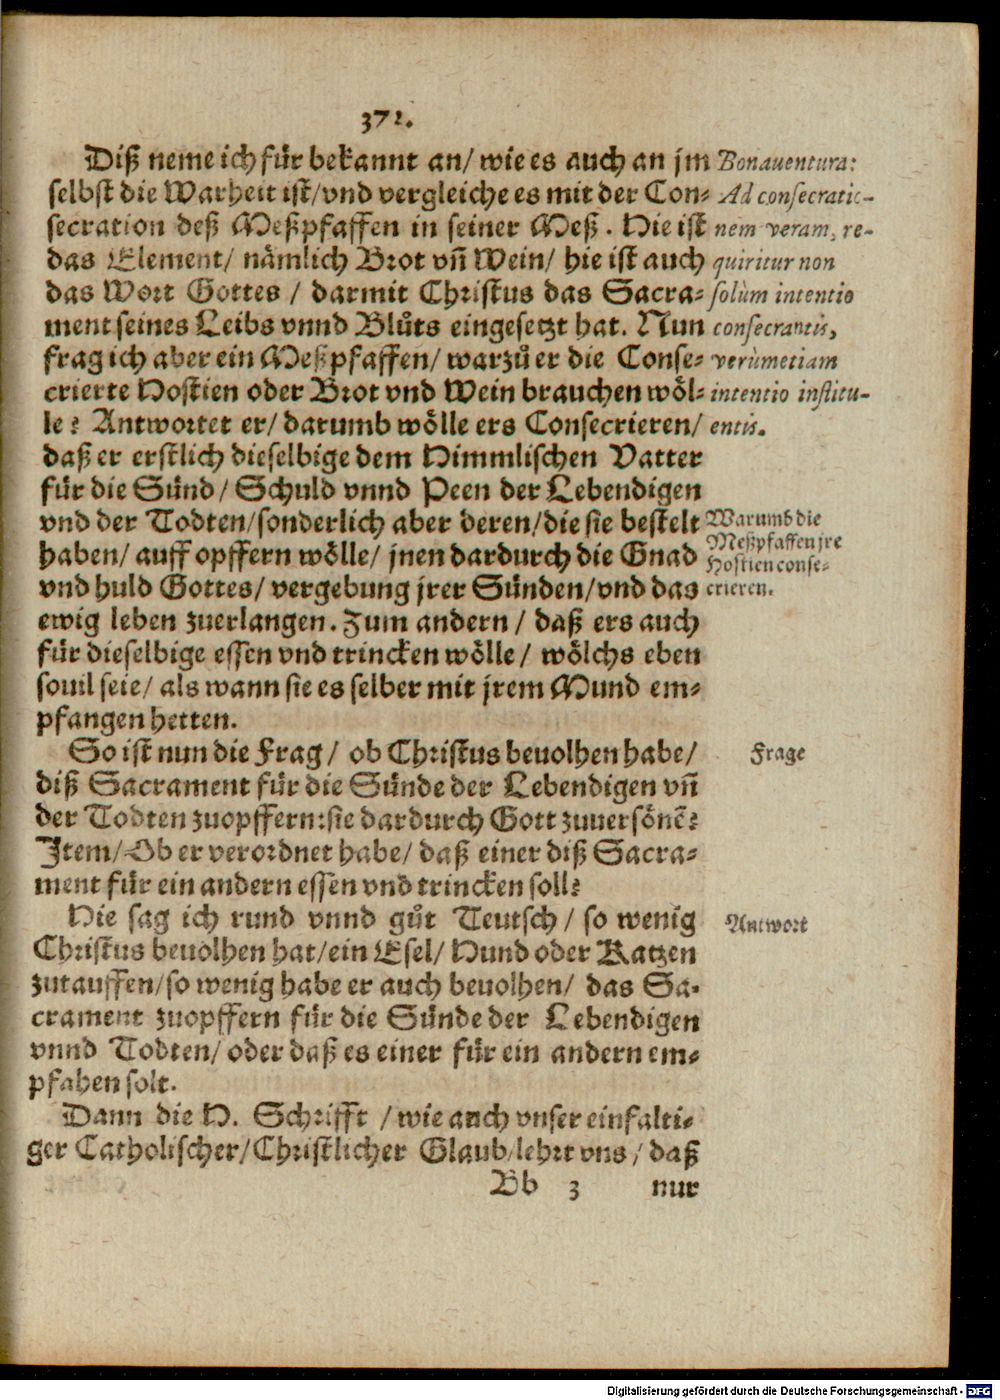 371.
Diß neme ich für bekannt an/ wie es auch an jm
selbst die Warheit ist/ vnd vergleiche es mit der Con-
secration deß Meßpfaffen in seiner Meß. Hie ist
das Element/ nämlich Brot vñ Wein/ hie ist auch
das Wort Gottes / darmit Christus das Sacra-
ment seines Leibs vnnd Blůts eingesetzt hat. Nun
frag ich aber ein Meßpfaffen/ warzů er die Conse-
crierte Hostien oder Brot vnd Wein brauchen wöl-
le? Antwortet er/ darumb wölle ers Consecrieren/
daß er erstlich dieselbige dem Himmlischen Vatter
für die Sünd/ Schuld vnnd Peen der Lebendigen
vnd der Todten/ sonderlich aber deren/ die sie bestelt
haben/ auff opffern wölle/ jnen dardurch die Gnad
vnd huld Gottes/ vergebung jrer Sünden/ vnd das
ewig leben zuerlangen. Zum andern / daß ers auch
für dieselbige essen vnd trincken wölle / wölchs eben
souil seie/ als wann sie es selber mit jrem Mund em-
pfangen hetten.
Bonauentura:
Ad consecratio-
nem veram, re-
quiritur non
solùm intentio
consecrantis,
verùmetiam
intentio institu-
entis.
Warumb die
Meßpfaffen jre
Hostien conse-
crieren.
So ist nun die Frag / ob Christus beuolhen habe/
diß Sacrament für die Sünde der Lebendigen vñ
der Todten zuopffern: sie dardurch Gott zuuersönē?
Item/ Ob er verordnet habe/ daß einer diß Sacra-
ment für ein andern essen vnd trincken soll?
Frage
Hie sag ich rund vnnd gůt Teutsch / so wenig
Christus beuolhen hat/ ein Esel/ Hund oder Katzen
zutauffen/ so wenig habe er auch beuolhen/ das Sa-
crament zuopffern für die Sünde der Lebendigen
vnnd Todten/ oder daß es einer für ein andern em-
pfahen solt.
Antwort
Dann die H. Schrifft / wie auch vnser einfalti-
ger Catholischer/ Christlicher Glaub/ lehrt vns / daß
Bb 3 nur
Digitalisierung gefördert durch die Deutsche Forschungsgemeinschaft - DFG